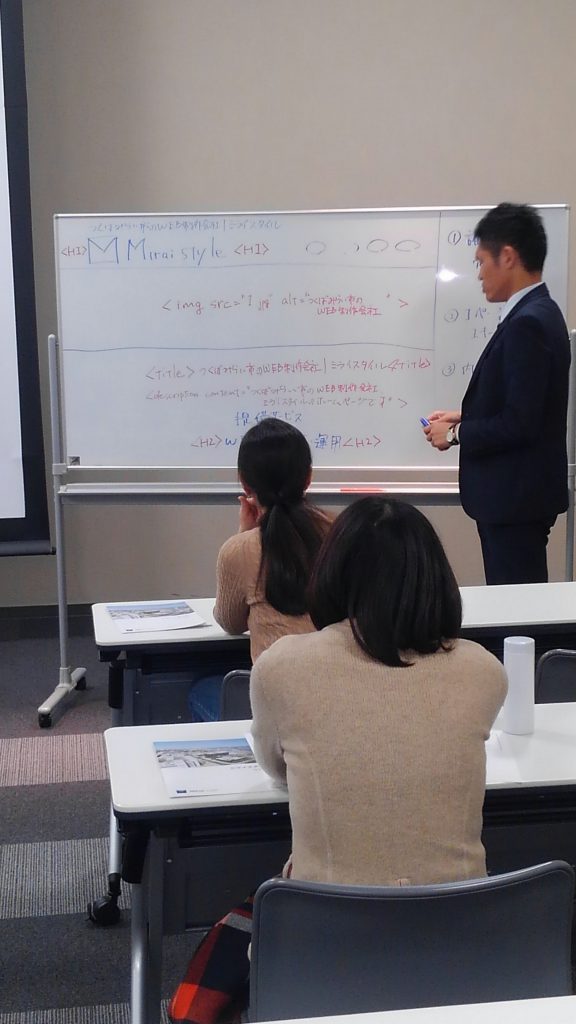 つくばみらい市のWEB制作会社|ミライスタイル
<H1> M Mirai style <H1>
<img src="1.jpg" alt="つくばみらい市の
WEB制作会社" >
<title> つくばみらい市のWEB制作会社|ミライスタイル</title>
<description content="つくばみらい市のWEB制作会社
ミライスタイルのホームページです">
提供サービス
<H2>W 運用<H2>
①
②
③ 内